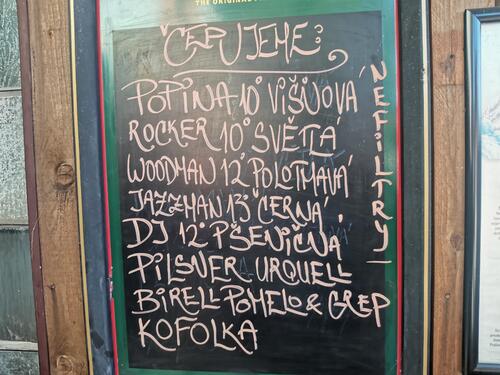 THE ORIGINAL
ČEPUJEME:
POPINA 10° VIŠŇOVÁ
ROCKER 10° SVĚTLÁ
WOODMAN 12° POLOTMAVÁ
JAZZMAN 13° ČERNÁ
DJ 12° PŠENIČNÁ
PILSNER URQUELL
BIRELL POMELO & GREP
KOFOLKA
NEFILTRY